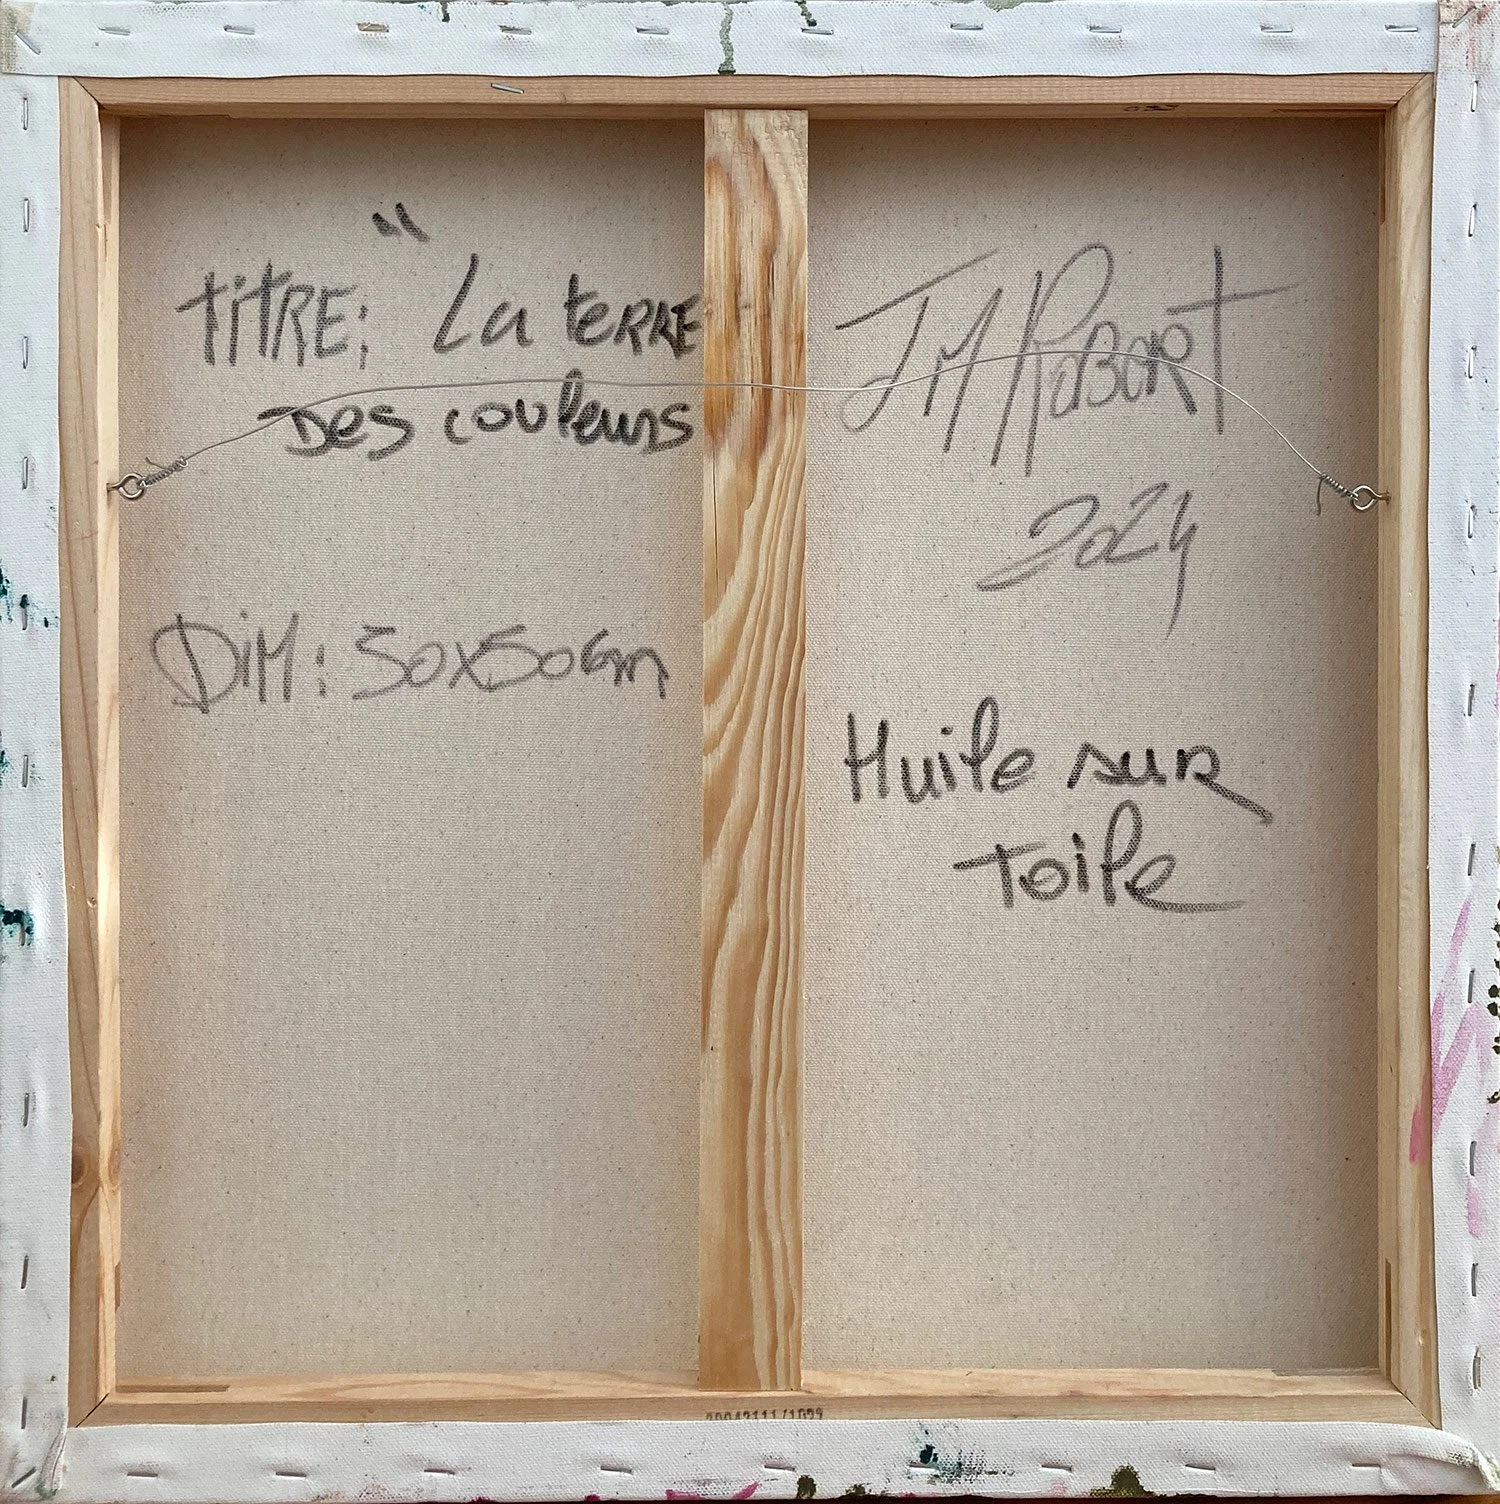 TITRE: " La terre
Des couleurs
DIM: 50x50cm
JM Robert
2024
Huile sur
Toile